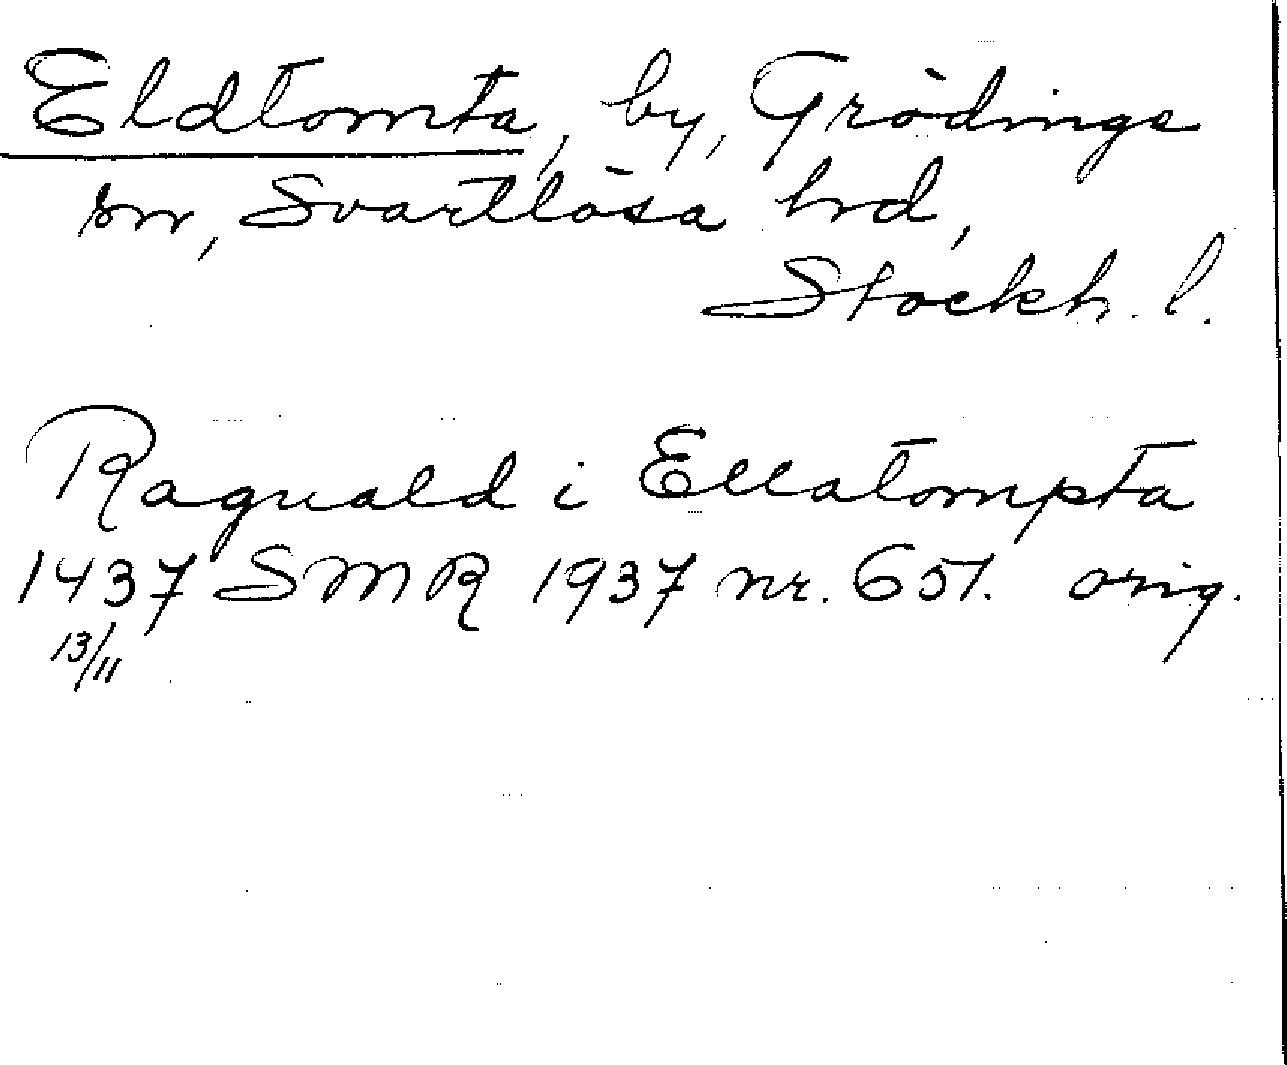 Eldtomta, by, Grödinge
sn, Svartlösa hrd,
Stockh. l.
Raguald i Ellatompta
1437 SMR 1937 nr. 651. orig.
13/11